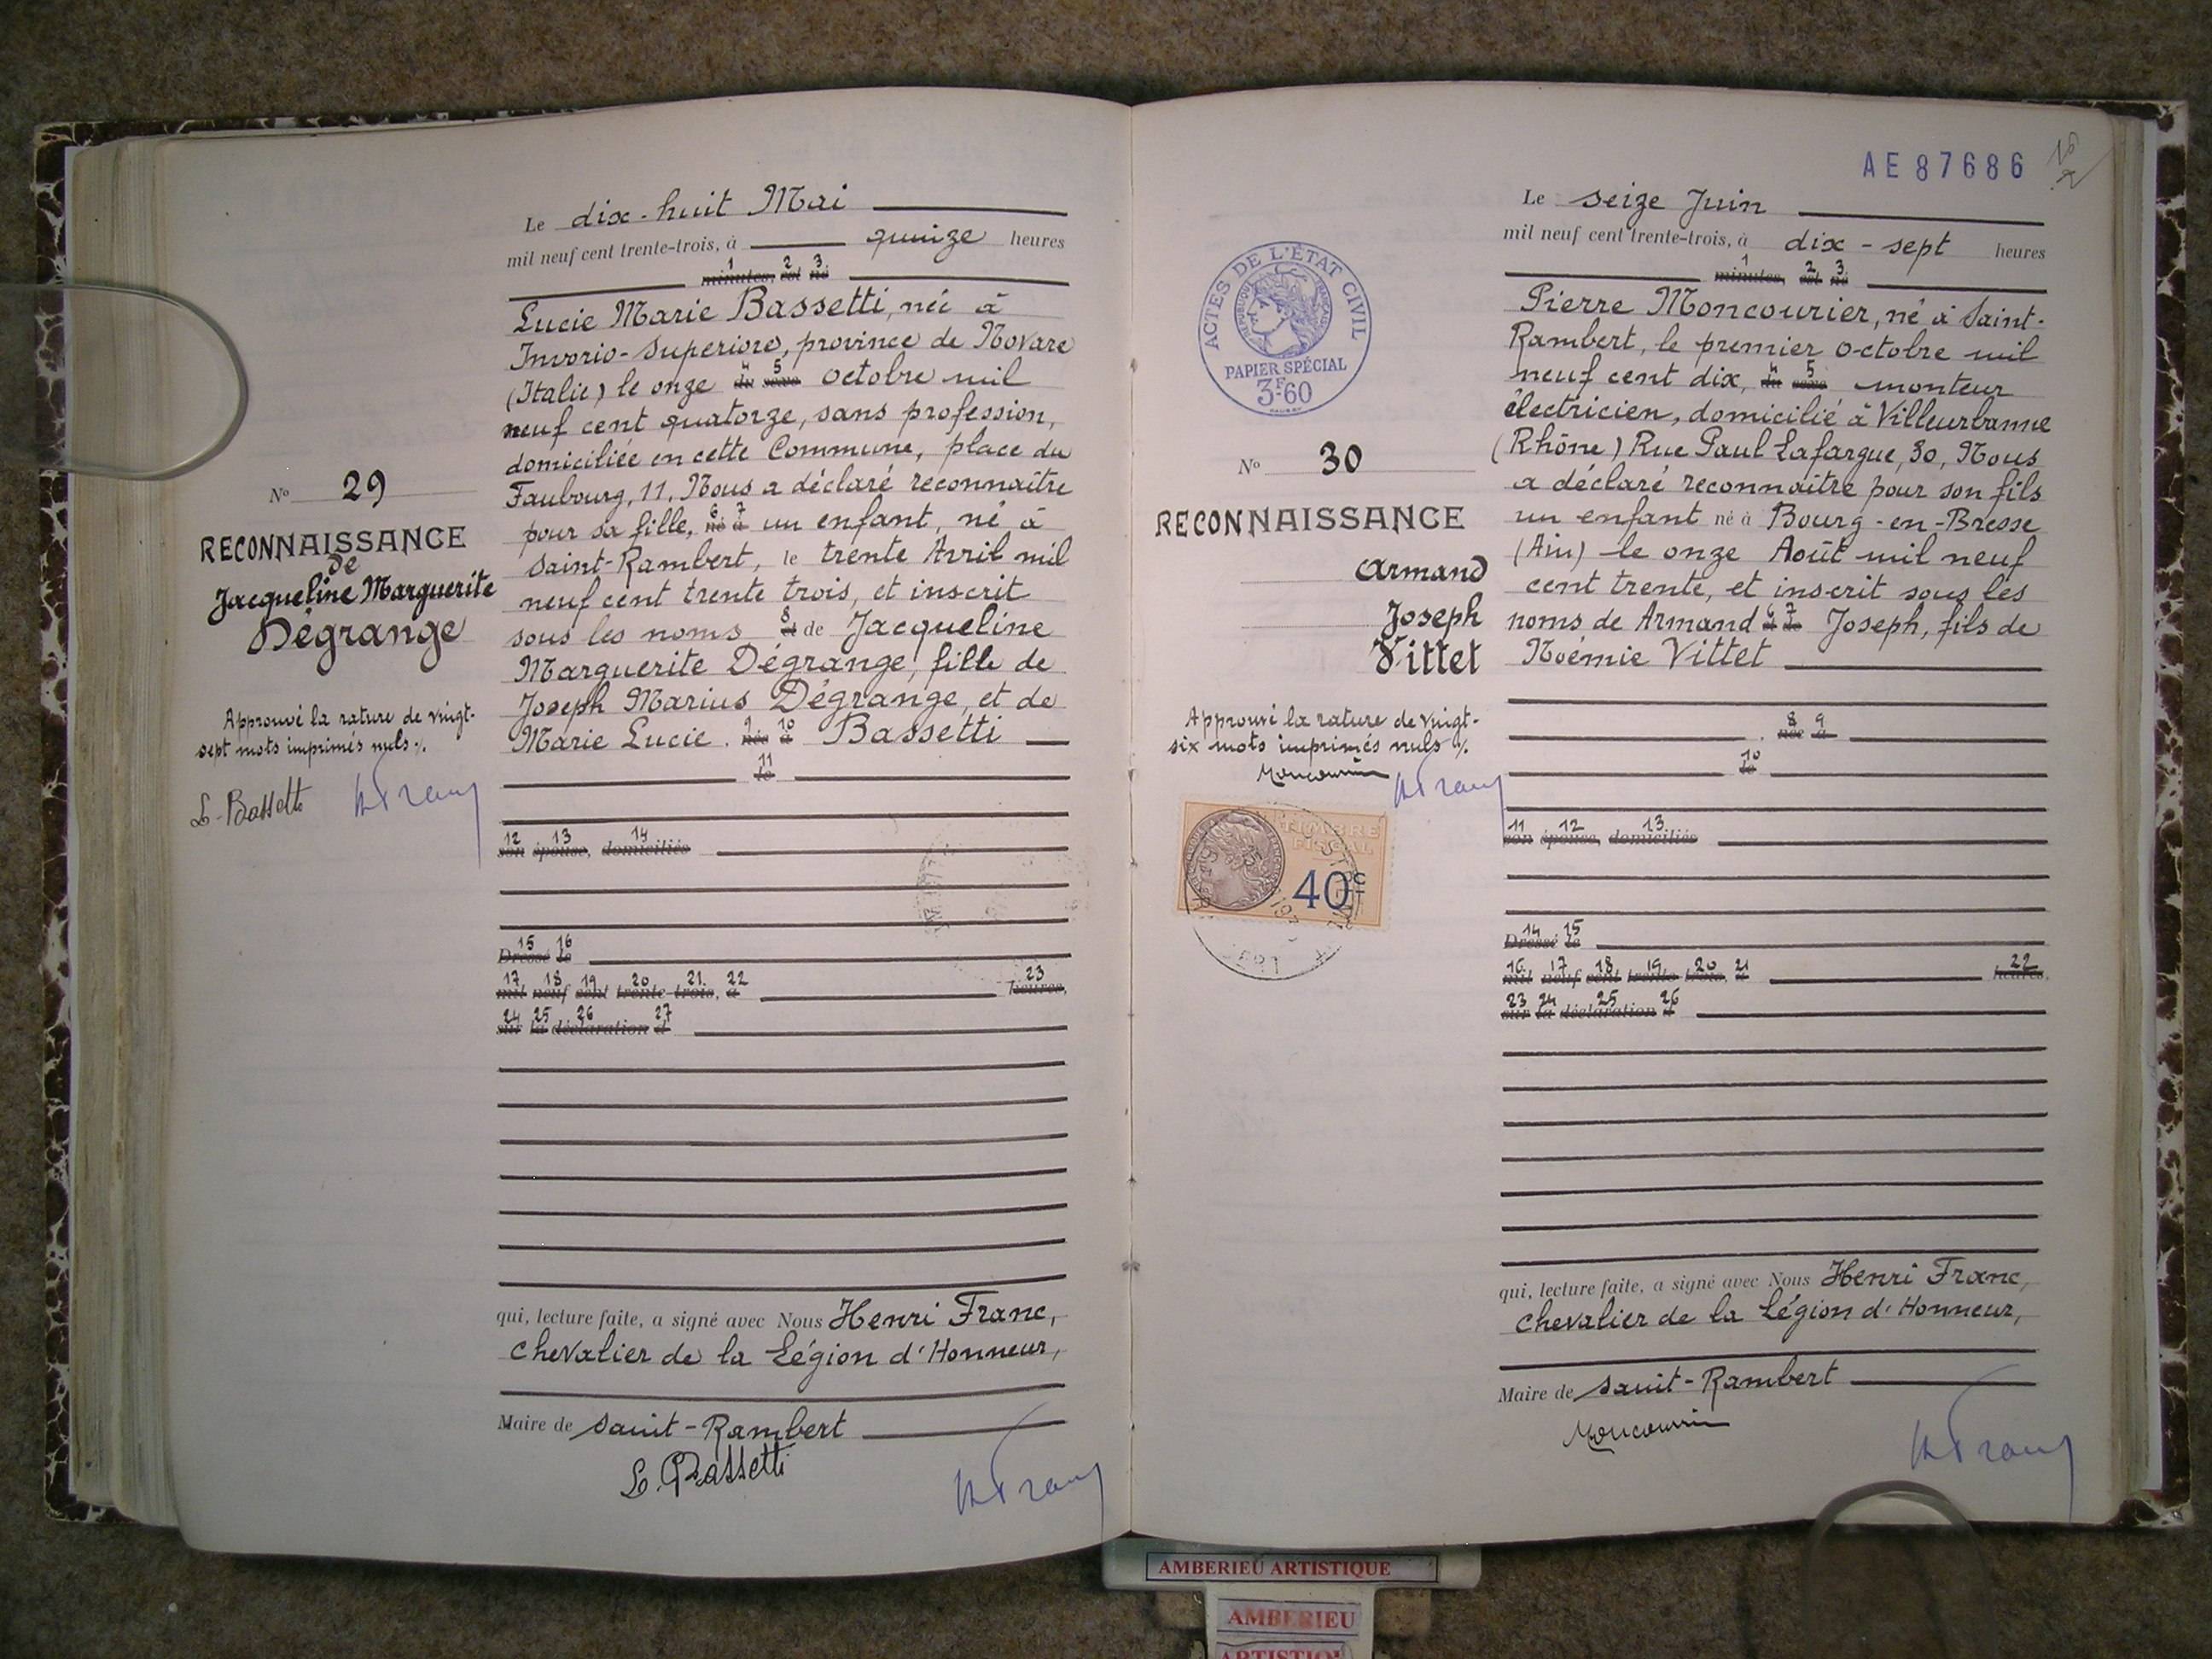 Le dix-huit Mai
mil neuf cent trente-trois, à quinze heures
minutes, est né
1 2 3
Lucie Marie Bassetti, née à
Invorio-Superiore, province de Novare
(Italie) le onze du sexe octobre mil
4 5
neuf cent quatorze, sans profession,
domiciliée en cette Commune, place du
Faubourg, 11, Nous a déclaré reconnaître
pour sa fille, né à un enfant, né à
6 7
Saint-Rambert, le trente Avril mil
neuf cent trente trois, et inscrit
sous les noms et de Jacqueline
8
Marguerite Dégrange, fille de
Joseph Marius Dégrange, et de
Marie Lucie. née à Bassetti
9 10
le
11
son épouse, domiciliés
12 13 14
Dressé le
15 16
mil neuf cent trente-trois, à heures,
17 18 19 20 21. 22 23
sur la déclaration d
24 25 26 27
qui, lecture faite, a signé avec Nous Henri Franc,
Chevalier de la Légion d'Honneur,
Maire de Saint-Rambert
L. Bassetti
HFranc
No 29
RECONNAISSANCE
de
Jacqueline Marguerite
Dégrange
Approuvé la rature de vingt-
sept mots imprimés nuls ./.
L. Bassetti HFranc
AE 87686
Le seize Juin
mil neuf cent trente-trois, à dix-sept heures
minutes, est né
1 2 3
Pierre Moncourier, né à Saint-
Rambert, le premier octobre mil
neuf cent dix, du sexe monteur
4 5
électricien, domicilié à Villeurbanne
(Rhône) Rue Paul Lafargue, 30, Nous
a déclaré reconnaître pour son fils
un enfant né à Bourg-en-Bresse
(Ain) le onze Août mil neuf
cent trente, et inscrit sous les
noms de Armand Joseph, fils de
6 7
Noémie Vittet
née à
8 9
le
10
son épouse, domiciliés
11 12 13.
Dressé le
14 15
mil neuf cent trente-trois, à heures,
16. 17 18 19 20 21 22
sur la déclaration d
23 24 25 26
qui, lecture faite, a signé avec Nous Henri Franc,
Chevalier de la Légion d'Honneur,
Maire de Saint-Rambert
Moncourier
HFranc
ACTES DE L'ÉTAT CIVIL
RÉPUBLIQUE FRANÇAISE
PAPIER SPÉCIAL
3F60
No 30
RECONNAISSANCE
Armand
Joseph
Vittet
Approuvé la rature de vingt-
six mots imprimés nuls ./.
Moncourier HFranc
TIMBRE
FISCAL
40c
AMBERIEU ARTISTIQUE
AMBERIEU
ARTISTIQUE